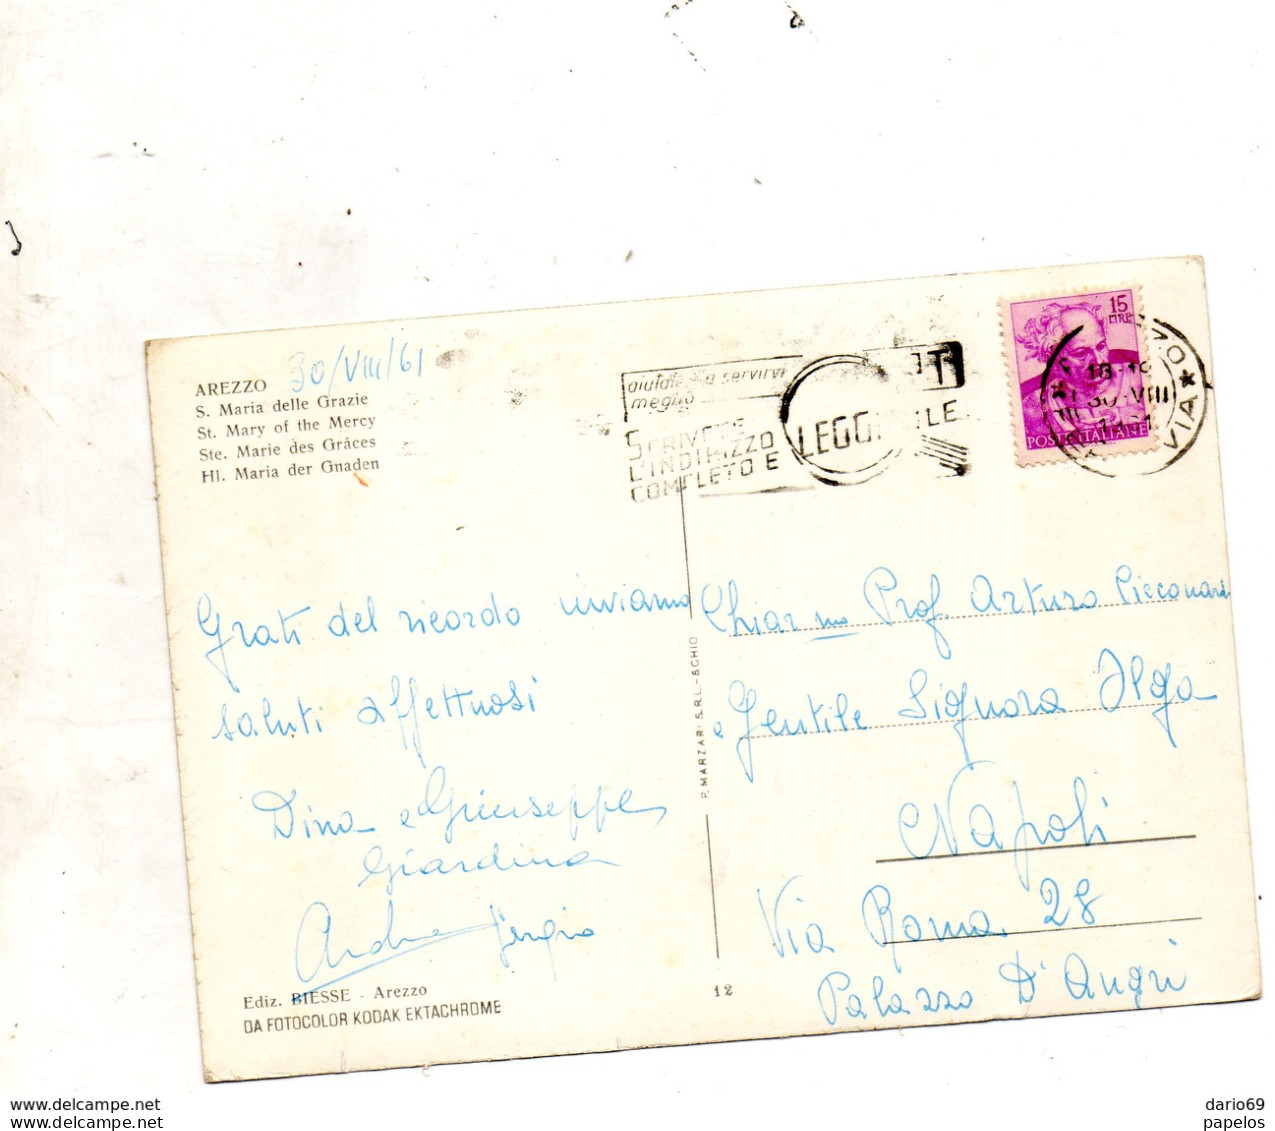 AREZZO
30/VIII/61
S. Maria delle Grazie
St. Mary of the Mercy
Ste. Marie des Grâces
Hl. Maria der Gnaden
servirvi
meglio
SCRIVETE
L'INDIRIZZO
COMPLETO E
15
LIRE
POSTE ITALIANE
30·VIII
VIA
Grati del ricordo inviamo
saluti affettuosi
Dina e Giuseppe
Giardina
Andrea Sergio
Ediz. BIESSE - Arezzo
DA FOTOCOLOR KODAK EKTACHROME
P. MARZARI S.R.L. - SCHIO
12
Chiar mo Prof. Arturo
e Gentile Signora Ilga
Napoli
Via Roma 28
Palazzo D'Angri
www.delcampe.net
www.delcampe.net
dario69
papelos